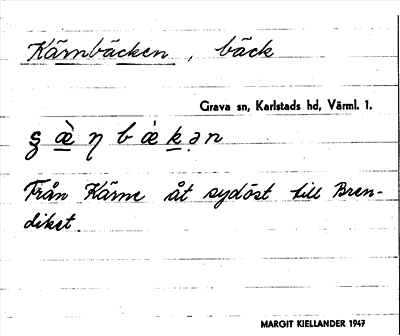 Kärnbäcken, bäck
Grava sn, Karlstads hd, Värml. 1.
Från Kärne åt sydöst till Bren-
diket.
MARGIT KIELLANDER 1947